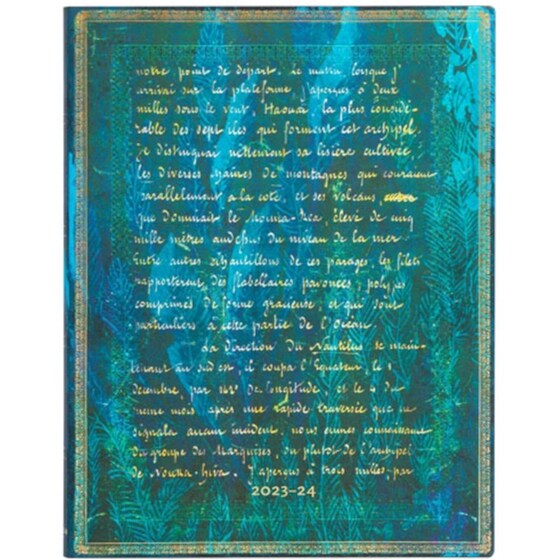 notre point de départ. Le matin lorsque j'
arrivai sur la plateforme j'aperçus à deux
milles sous le vent, Haouaï la plus considé-
rable des sept îles qui forment cet archipel.
je distinguai nettement sa lisière cultivée
les diverses chaînes de montagnes qui couraient
parallèlement à la côte, et ses volcans
que dominait le Mouna-Rea, élevé de cinq
mille mètres audessus du niveau de la mer
Entre autres échantillons de ces parages, les filets
rapportèrent des flabellaires pavonées, polypes
comprimés de forme gracieuse, et qui sont
particuliers à cette partie de l'Océan.
La direction du Nautilus se main-
tenant au sud est, il coupa l'Equateur, le 1
décembre, par 142° de longitude, et le 4 du
même mois après une rapide traversée que ne
signala aucun incident, nous eûmes connaissance
du groupe des Marquises, ou plutôt de l'archipel
de Nouka-hiva. J'aperçus à trois milles, par
2023-24